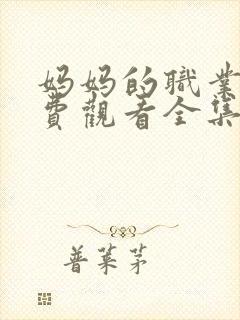 妈妈的職業
費觀看全集
普萊茅